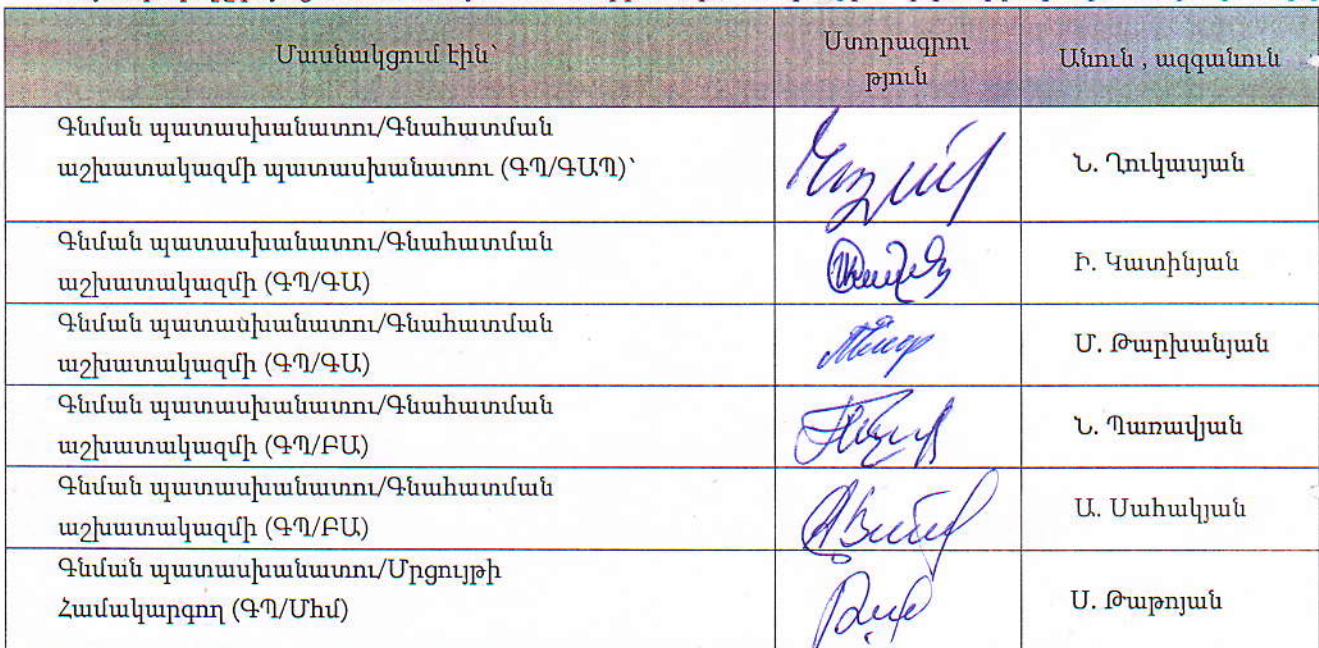 Մասնակցում էին՝
Ստորագրու
թյուն
Անուն , ազգանուն
Գնման պատասխանատու/Գնահատման
աշխատակազմի պատասխանատու (ԳՊ/ԳԱՊ)՝
Ն. Ղուկասյան
Գնման պատասխանատու/Գնահատման
աշխատակազմի (ԳՊ/ԳԱ)
Ի. Կատինյան
Գնման պատասխանատու/Գնահատման
աշխատակազմի (ԳՊ/ԳԱ)
Մ. Թարխանյան
Գնման պատասխանատու/Գնահատման
աշխատակազմի (ԳՊ/ԲԱ)
Ն. Պառավյան
Գնման պատասխանատու/Գնահատման
աշխատակազմի (ԳՊ/ԲԱ)
Ա. Սահակյան
Գնման պատասխանատու/Մրցույթի
Համակարգող (ԳՊ/Մհմ)
Ս. Թաթոյան